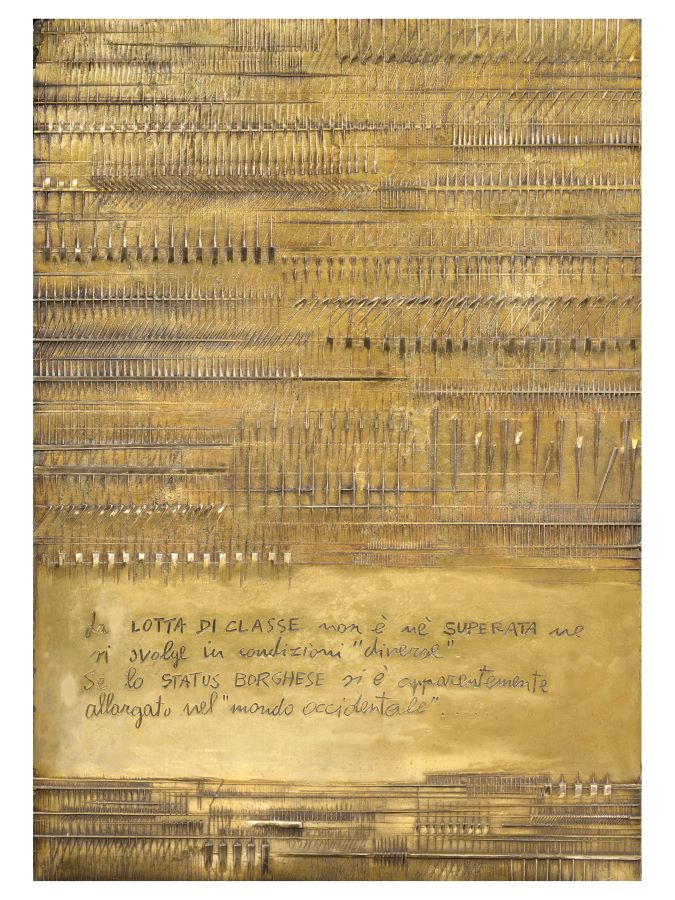 La LOTTA DI CLASSE non è nè SUPERATA ne
si svolge in condizioni "diverse"
Se lo STATUS BORGHESE si è apparentemente
allargato nel "mondo occidentale"...